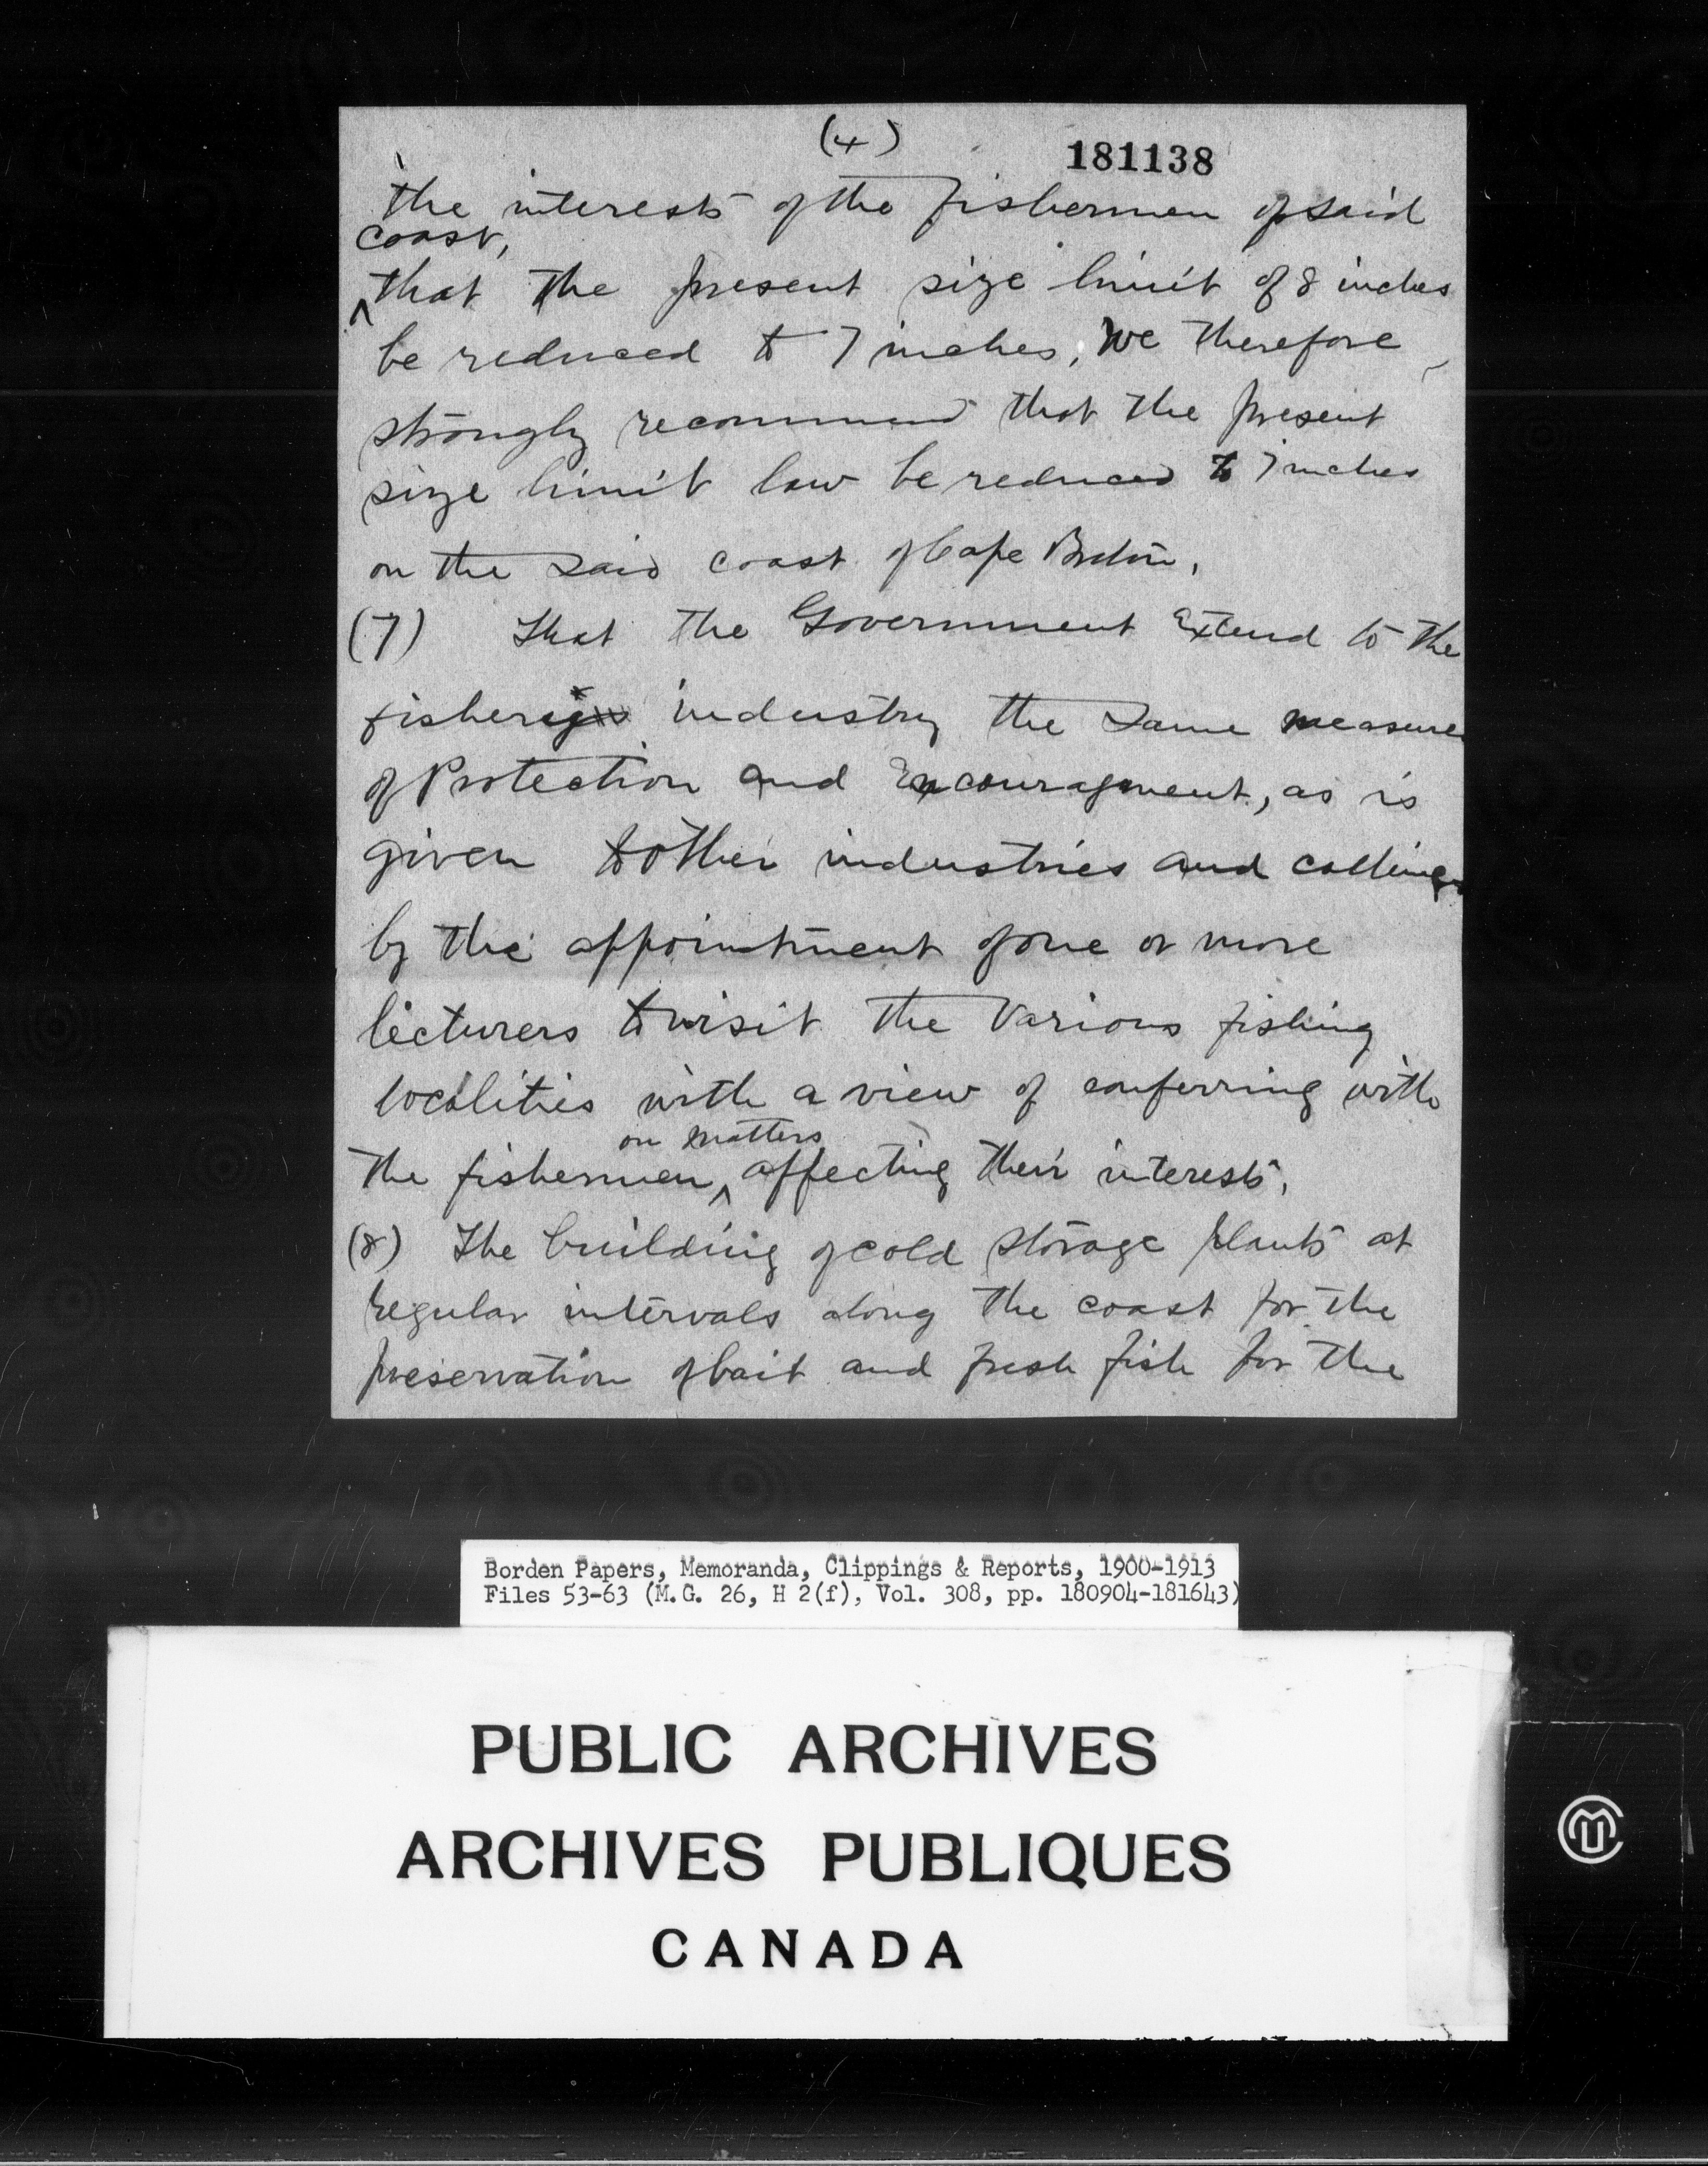 (4)
181138
the interests of the fishermen of said
coast,
^that the present size limit of 8 inches
be reduced to 7 inches, We therefore
strongly recommend that the present
size limit law be reduced to 7 inches
on the said coast of Cape Breton.
(7) That the Government Extend to the
fishery industry the same measure
of Protection and Encouragment, as is
given to other industries and callings
by the appointment of one or more
lecturers to visit the Various fishing
localities with a view of conferring with
on matters
the fishermen ^ affecting their interests.
(8) The building of cold storage plants at
regular intervals along the coast for the
preservation of bait and fresh fish for the
Borden Papers, Memoranda, Clippings & Reports, 1900-1913
Files 53-63 (M.G. 26, H 2(f), Vol. 308, pp. 180904-181643)
PUBLIC ARCHIVES
ARCHIVES PUBLIQUES
CANADA